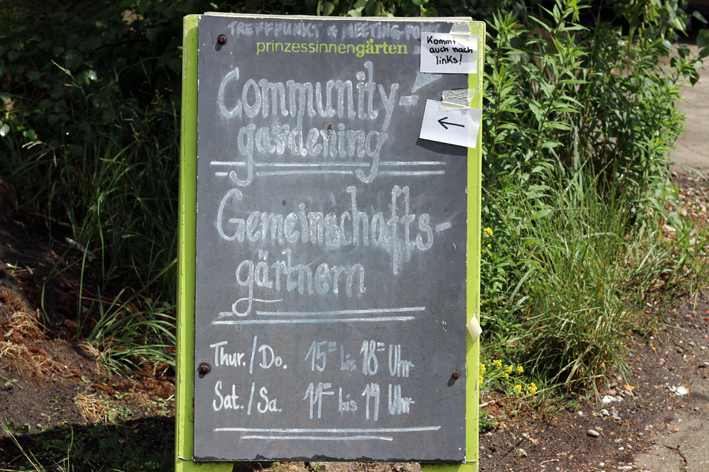 TREFFPUNKT & MEETING-PO
prinzessinnengärten
Kommt
auch nach
links!
←
Community-
gardening
Gemeinschafts-
gärtnern
Thur./Do. 15⁰⁰ bis 18⁰⁰ Uhr
Sat./Sa. 11⁰⁰ bis 19 Uhr